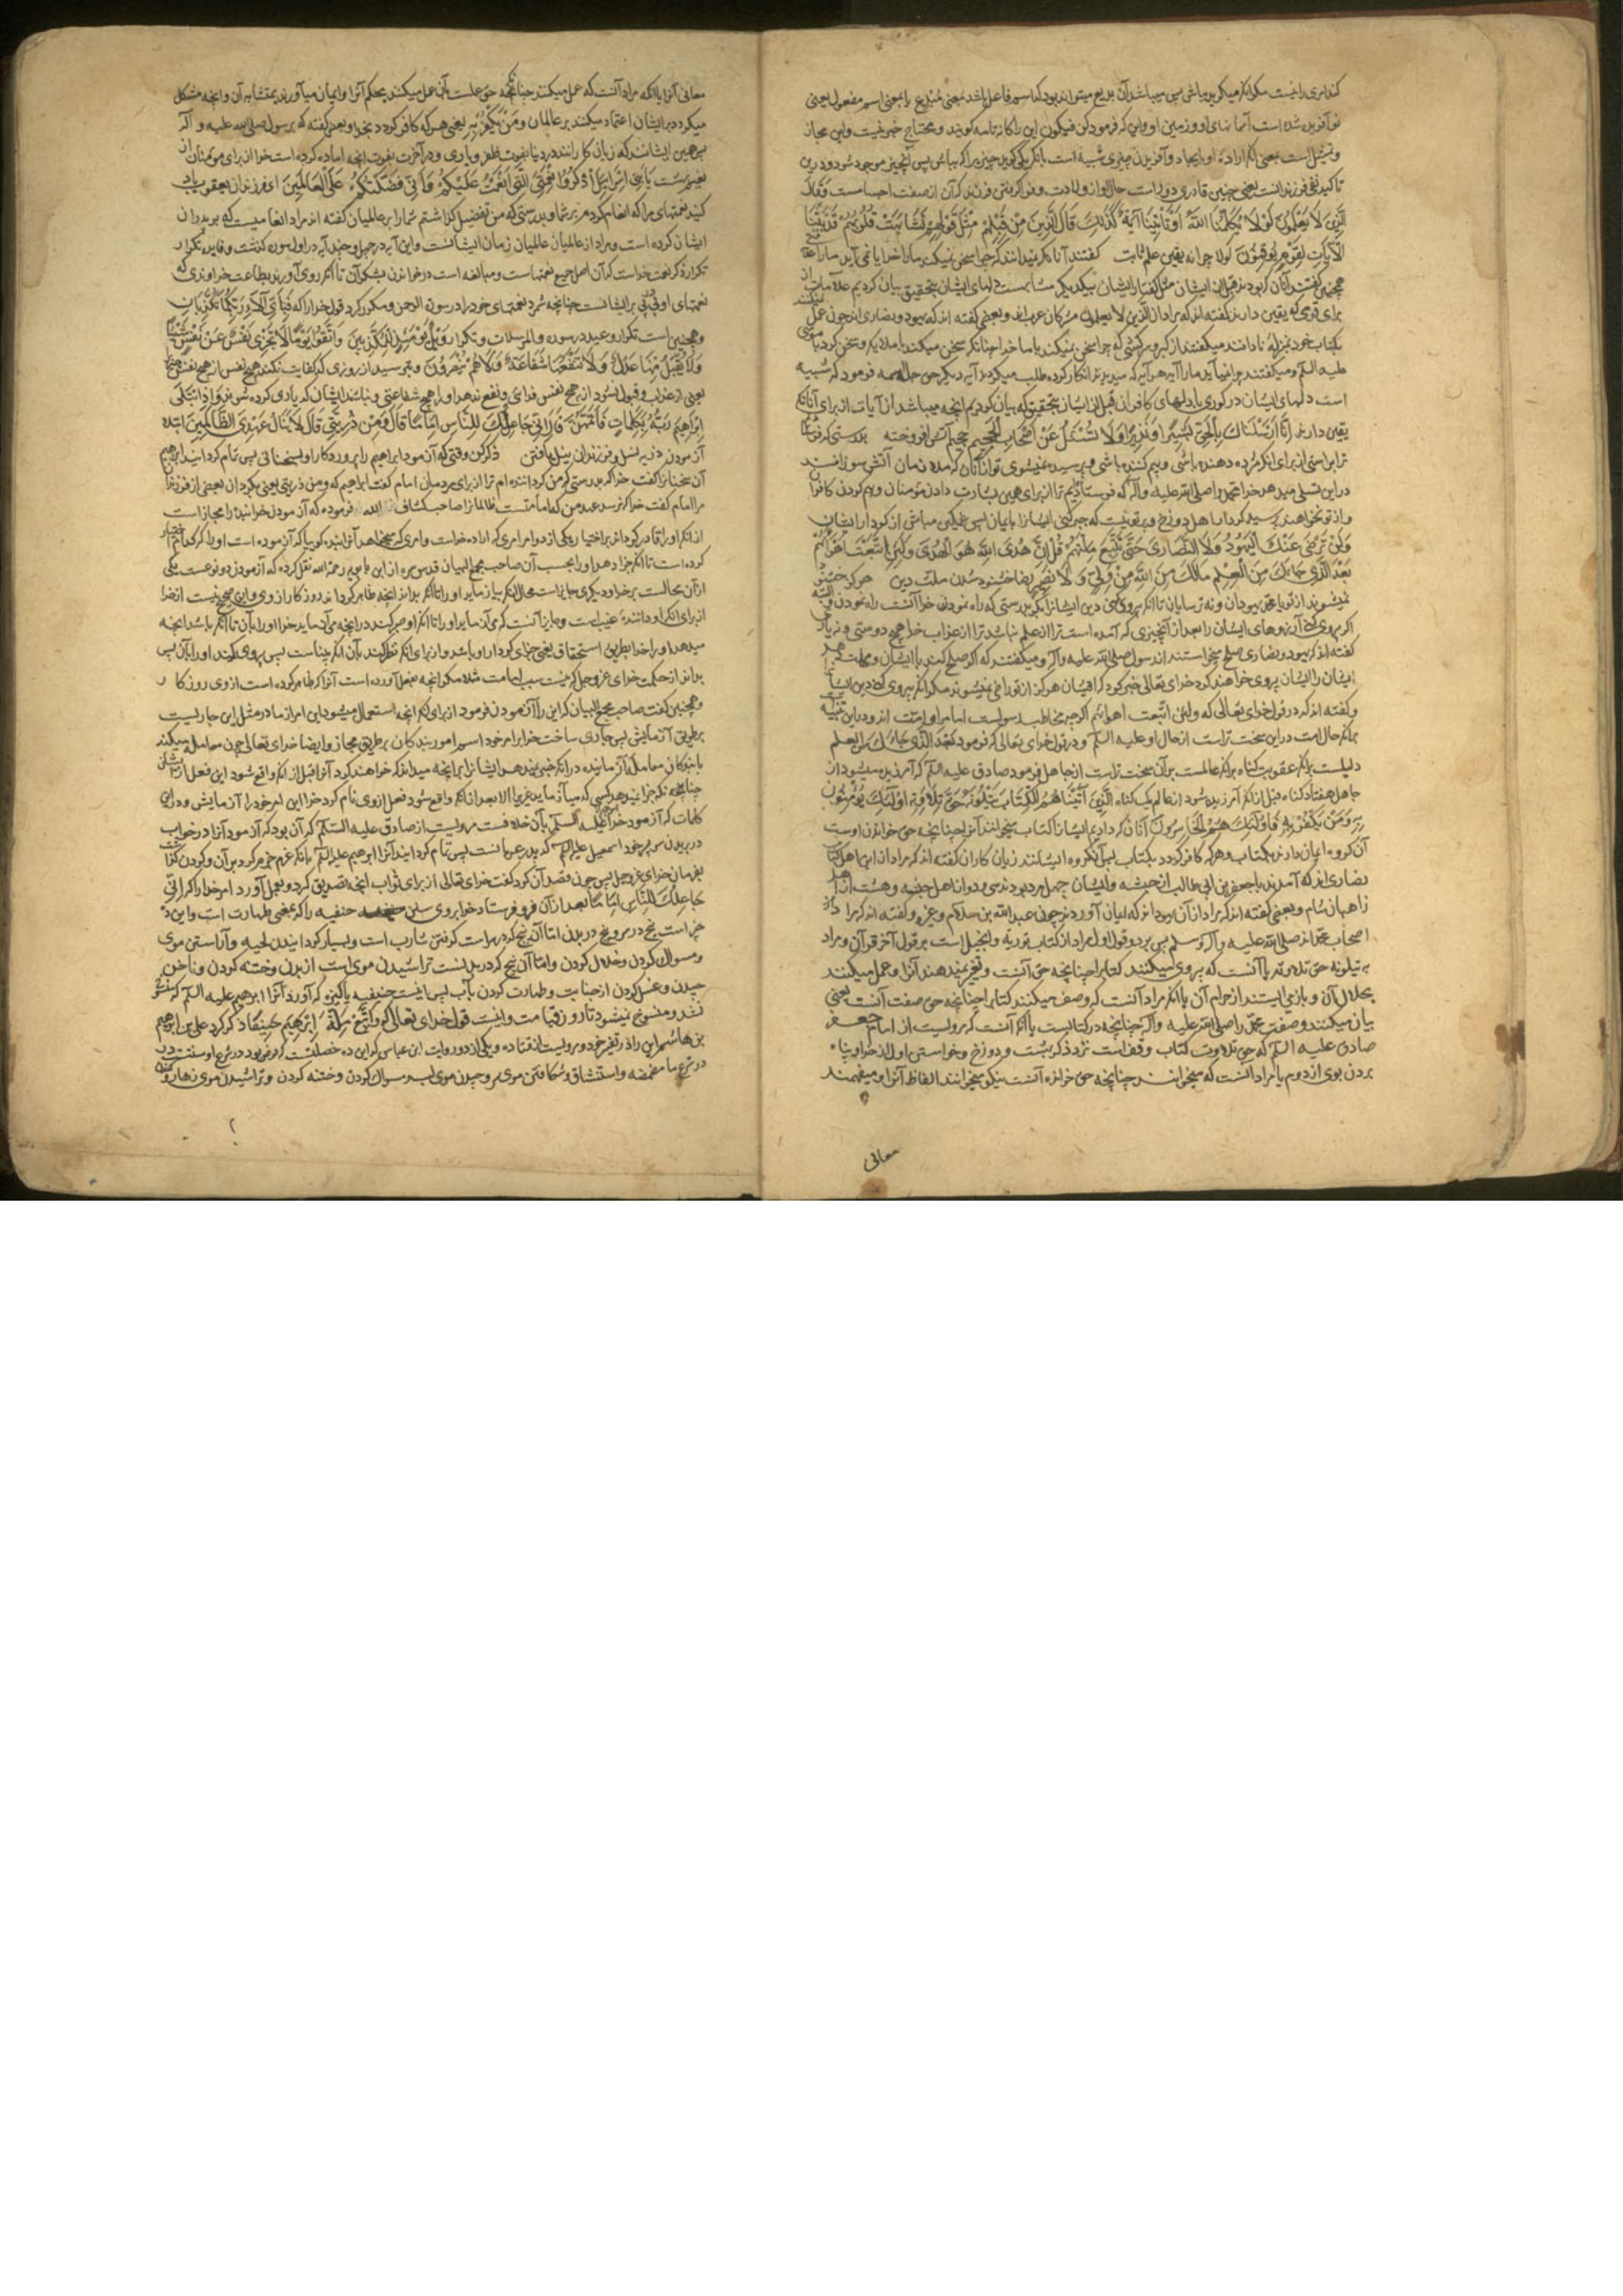 کند امری را نیست مکر انکه میکوید باش پس میباشد آن بدیع میتواند بود که اسم فاعل باشد بمعنی مبدع یا بمعنی اسم مفعول یعنی
نو آفریده شده است آسمانهای او و زمین او و این که فرمود کن فیکون این را کان تامه کویند و محتاج خبر نیست و این مجاز
و تمثیل است یعنی انکه اراده او ایجاد و آفریدن چیزی شبیه است بانکه یکی کوید چیزیرا که باش پس آنچیز موجود شود و درین
تاکید نفی فرزند است یعنی چنین قادری دور است حال او از ولادت و فرا کرفتن فرزند که آن از صفت اجسامست وَقَالَ
الَّذِينَ لَا يَعْلَمُونَ لَوْلَا يُكَلِّمُنَا اللَّهُ أَوْ تَأْتِينَا آيَةٌ كَذَلِكَ قَالَ الَّذِينَ مِنْ قَبْلِهِمْ مِثْلَ قَوْلِهِمْ تَشَابَهَتْ قُلُوبُهُمْ قَدْ بَيَّنَّا
الْآيَاتِ لِقَوْمٍ يُوقِنُونَ لولا چرا نه یقین علم ثابت کفتند آنانکه نمیدانند که چرا سخن نمیکند مارا خدا یا نمی آید مارا
همچنین کفتند آنان که بودند قبل از ایشان مثل کفتار ایشان بیکدیکر مشابهست دلهای ایشان بتحقیق بیان کردیم علامات
برای قومی که یقین دارند کفته اند که مراد از الذین لا یعلمون مشرکان عرب اند و بعضی کفته اند که یهود و نصاری اند چون عمل
بکتاب خود بمنزله نادانند میکفتند از کبر و سرکشی که چرا سخن نمیکند با ما خدا چنانکه سخن میکند با ملایکه و سخن کرد با موسی
علیه السلم و میکفتند چرا نمیآید مارا آیه هر آیه که میدیدند انکار کرده طلب میکردند آیه دیکر حق جل اسمه فرمود که شبیه
است دلهای ایشان در کوری با دلهای کافران قبل از ایشان بتحقیق که بیان کردیم انچه میباشد از آیات از برای آنانکه
یقین دارند إِنَّا أَرْسَلْنَاكَ بِالْحَقِّ بَشِيرًا وَنَذِيرًا وَلَا تُسْئَلُ عَنْ أَصْحَابِ الْجَحِيمِ جحیم آتش افروخته بدرستی که فرستادیم
ترا براستی از برای انکه مژده دهنده باشی و بیم کننده باشی و پرسیده نمیشوی تو از آنان که ملازمان آتش سوزانند
در این تسلی میدهد خدا محمد را صلی الله علیه و آله که فرستادیم ترا از برای همین بشارت دادن مؤمنان و بیم کردن کافران
و از تو نخواهند پرسید کردار اهل دوزخ و بر تو نیست که جبر کنی ایشانرا بایمان پس غمکین مباش از کردار ایشان
وَلَنْ تَرْضَى عَنْكَ الْيَهُودُ وَلَا النَّصَارَى حَتَّى تَتَّبِعَ مِلَّتَهُمْ قُلْ إِنَّ هُدَى اللَّهِ هُوَ الْهُدَى وَلَئِنِ اتَّبَعْتَ أَهْوَاءَهُمْ
بَعْدَ الَّذِي جَاءَكَ مِنَ الْعِلْمِ مَا لَكَ مِنَ اللَّهِ مِنْ وَلِيٍّ وَلَا نَصِيرٍ رضا خشنود شدن ملت دین هرکز خشنود
نمیشوند از تو یا محمد یهودان و نه ترسایان تا انکه پیروی کنی دین ایشانرا بکو بدرستی که راه نمودن خدا آنست راه نمودن و البته
اکر پیروی کنی آرزوهای ایشان را بعد از آنچیزی که آمده است ترا از علم نباشد ترا از عذاب خدا هیچ دوستی و نه یاری
کفته اند که یهود و نصاری صلح میخواستند از رسول صلی الله علیه و آله و میکفتند که اکر صلح کند با ایشان و مهلت دهد
ایشان را ایشان پیروی خواهند کرد خدای تعالی خبر کرد که ایشان هرکز از تو راضی نمیشوند مکر انکه پیروی کنی دین ایشان
و کفته اند که در قول خدای تعالی که و لئن اتبعت اهواءهم اکرچه مخاطب رسولست اما مراد امت اند و در این تنبیه
برانکه حال امت در این سخت تر است از حال او علیه السلم و در قول خدای تعالی که فرمود بعد الذی جاءک من العلم
دلیلست برانکه عقوبت کناه برانکه عالمست بر آن سخت تر است از جاهل فرمود صادق علیه السلم که آمرزیده میشود از
جاهل هفتاد کناه قبل از انکه آمرزیده شود از عالم یک کناه الَّذِينَ آتَيْنَاهُمُ الْكِتَابَ يَتْلُونَهُ حَقَّ تِلَاوَتِهِ أُولَئِكَ يُؤْمِنُونَ
بِهِ وَمَنْ يَكْفُرْ بِهِ فَأُولَئِكَ هُمُ الْخَاسِرُونَ آنان که دادیم ایشانرا کتاب میخوانند آنرا چنانچه حق خواندن اوست
آن کروه ایمان دارند بکتاب و هرکه کافر کردد بکتاب پس آنکروه ایشانند زیان کاران کفته اند که مراد از این اهل کتاب
نصاری اند که آمدند با جعفر بن ابی طالب از حبشه و ایشان چهل مرد بودند سی و دو از اهل حبشه و هشت از
زاهبان شام و بعضی کفته اند که مراد از آن یهودانند که ایمان آوردند چون عبد الله بن سلام و غیره و کفته اند که مراد از
اصحاب محمد اند صلی الله علیه و آله و سلم پس بر دو قول اول مراد از کتاب توریة و انجیل است بر قول آخر قرآن و مراد
به یتلونه حق تلاوته یا آنست که پیروی میکنند کتابرا چنانچه حق آنست و تغییر نمیدهند آنرا و عمل میکنند
بحلال آن و باز می ایستند از حرام آن یا انکه مراد آنست که وصف میکنند کتابرا چنانچه حق صفت آنست یعنی
بیان میکنند وصفت محمد را صلی الله علیه و آله چنانچه در کتابست یا انکه آنست که مرویست از امام جعفر
صادق علیه السلم که حق تلاوت کتاب وقف است نزد ذکر بهشت و دوزخ و خواستن اول از خدا و پناه
بردن بوی از دوم یا مراد انست که میخوانند چنانچه حق خواندن آنست نیکو میخوانند الفاظ آنرا و میفهمند
معانی
معانی آنرا یا انکه مراد آنست که عمل میکنند چنانچه حق عملست بآن عمل میکنند بمحکم آنرا و ایمان میآورند بمتشابه آن و انچه مشکل
میکردد بر ایشان اعتماد میکنند بر عالمان وَمَنْ يَكْفُرْ بِهِ یعنی هر که کافر کردد بخدا و بعضی کفته که برسول صلی الله علیه و آله
پس همین ایشانند که زیان کارانند در دنیا بفوت ظفر و یاری و در آخرت بفوت انچه اماده کرده است خدا از برای مؤمنان از
نعیم بهشت يَا بَنِي إِسْرَائِيلَ اذْكُرُوا نِعْمَتِيَ الَّتِي أَنْعَمْتُ عَلَيْكُمْ وَأَنِّي فَضَّلْتُكُمْ عَلَى الْعَالَمِينَ ای فرزندان یعقوب یاد
کنید نعمتهای مرا که انعام کردم بر شما و بدرستی که من تفضیل کذاشتم شمارا بر عالمیان کفته اند مراد انعامیست که بر پدران
ایشان کرده است و مراد از عالمیان عالمیان زمان ایشانست و این آیه در چهل و چند آیه در اول سوره کذشت و فایده تکرار
تکرار ذکر نعمت خداست که آن اصل جمیع نعمتهاست و مبالغه است در خواندن بشکر آن تا انکه روی آورند بطاعت خداوندی که
نعمتهای او پی در پی بر ایشانست چنانچه شمرد نعمتهای خود را در سوره الرحمن و مکرر کرد قول خدا را که فَبِأَيِّ آلَاءِ رَبِّكُمَا تُكَذِّبَانِ
و همچنین است تکرار وعید در سوره والمرسلات و تکرار وَيْلٌ يَوْمَئِذٍ لِلْمُكَذِّبِينَ وَاتَّقُوا يَوْمًا لَا تَجْزِي نَفْسٌ عَنْ نَفْسٍ شَيْئًا
وَلَا يُقْبَلُ مِنْهَا عَدْلٌ وَلَا تَنْفَعُهَا شَفَاعَةٌ وَلَا هُمْ يُنْصَرُونَ و بترسید از روزی که کفایت نکند هیچ نفس از هیچ نفس چیزی
یعنی از عذاب و قبول نشود از هیچ نفس فدای و نفع ندهد او را هیچ شفاعتی و نباشند ایشان که یاری کرده شوند وَإِذِ ابْتَلَى
إِبْرَاهِيمَ رَبُّهُ بِكَلِمَاتٍ فَأَتَمَّهُنَّ قَالَ إِنِّي جَاعِلُكَ لِلنَّاسِ إِمَامًا قَالَ وَمِنْ ذُرِّيَّتِي قَالَ لَا يَنَالُ عَهْدِي الظَّالِمِينَ ابتلا
آزمودن ذریه نسل و فرزندان نیل یافتن ذکر کن وقتی که آزمود ابراهیم را پروردکار او بسخنانی پس تمام کردانید ابراهیم
آن سخنانرا کفت خدا که بدرستی که من کرداننده ام ترا از برای مردمان امام کفت ابراهیم که و من ذریتی یعنی بکردان بعضی از فرزندان
مرا امام کفت خدا که نرسد عهد من که امامتست ظالمانرا صاحب کشاف فرموده که آزمودن خدا بنده را مجاز است
از انکه او را قادر کرداند بر اختیار یکی از دو امر امری که اراده خداست و امری که میخواهد آنرا بنده کویا که آزموده است او را که کدام اختیار
کرده است تا انکه جزا دهد او را بحسب آن صاحب مجمع البیان قدس سره از ابن بابویه رحمه الله نقل کرده که آزمودن دو نوعست یکی
از آن محالست بر خدا و دیکری جایز است محال انکه بیازماید او را تا انکه بداند انچه ظاهر کرداند روزکار از وی و این صحیح نیست از خدا
از برای انکه او داننده غیب است و جایز آنست که می آزماید او را تا انکه او صبر کند در انچه می آزماید خدا او را بآن تا انکه باشد انچه
میدهد او را خدا بطریق استحقاق یعنی جزای کردار او باشد و از برای انکه نظر کنند بآن انکه بیناست پس پیروی کند او را بآن پس
بداند از حکمت خدای عز و جل که نیست سبب امامت شده مکر انچه بفعل آورده است آنرا که ظاهر کرده است از وی روزکار
و همچنین کفت صاحب مجمع البیان که این را آزمودن فرمود از برای انکه انچه استعمال میشود این امر از ما در مثل این جاریست
بطریق آزمایش پس جاری ساخت خدا بر امر خود اسم امور بندکان بر طریق مجاز و ایضا خدای تعالی چون معامله میکند
با بندکان معامله آزماینده در انکه جزا نمیدهد ایشانرا بر انچه میداند که خواهند کرد آنرا قبل از انکه واقع شود این فعل از ایشان
چنانچه نکه جزا نمیدهد کسی که میآزماید غیریرا الا بعد از انکه واقع شود فعل از وی نام کرد خدا این امر خود را آزمایش و در این
کلمات که آزمود خدا ابراهیم علیه السلم بآن خلافست مرویست از صادق علیه السلم که آن بود که آزمود آنرا در خواب
در بریدن سر پسر خود اسمعیل علیه السلم که پدر عربانست پس تمام کردانید آنرا ابراهیم علیه السلم بانکه عزم جزم کرد بر آن و کردن کذاشت
بفرمان خدای عز و جل پس چون قصد آن کرد کفت خدای تعالی از برای ثواب انچه تصدیق کرد و بعمل آورد امر خدا را که انی
جَاعِلُكَ لِلنَّاسِ إِمَامًا بعد از آن فرو فرستاد خدا بروی سنن حنفیه را که بمعنی طهارت است و این ده
چیز است پنج در سر و پنج در بدن اما آن پنج که در سر است کرفتن شارب است و بسیار کردانیدن لحیه و آراستن موی
و مسواک کردن و خلال کردن و اما آن پنج که در بدنست تراشیدن موی است از بدن و ختنه کردن و ناخن
چیدن و غسل کردن از جنابت و طهارت کردن بآب پس اینست حنیفیه پاکیزه که آورد آنرا ابراهیم علیه السلم که منسوخ
نشد و منسوخ نمیشود تا روز قیامت و اینست قول خدای تعالی که وَاتَّبِعْ مِلَّةَ إِبْرَاهِيمَ حَنِيفًا ذکر کرد علی بن ابراهیم
بن هاشم این را در تفسیر خود و مرویست از قتاده و یکی از دو روایت ابن عباس که این ده خصلتست که فرض بود در شرع او سنتست در
در شرع ما مضمضه و استنشاق و شکافتن موی سر و چیدن موی لب و مسواک کردن و ختنه کردن و تراشیدن موی زهار و